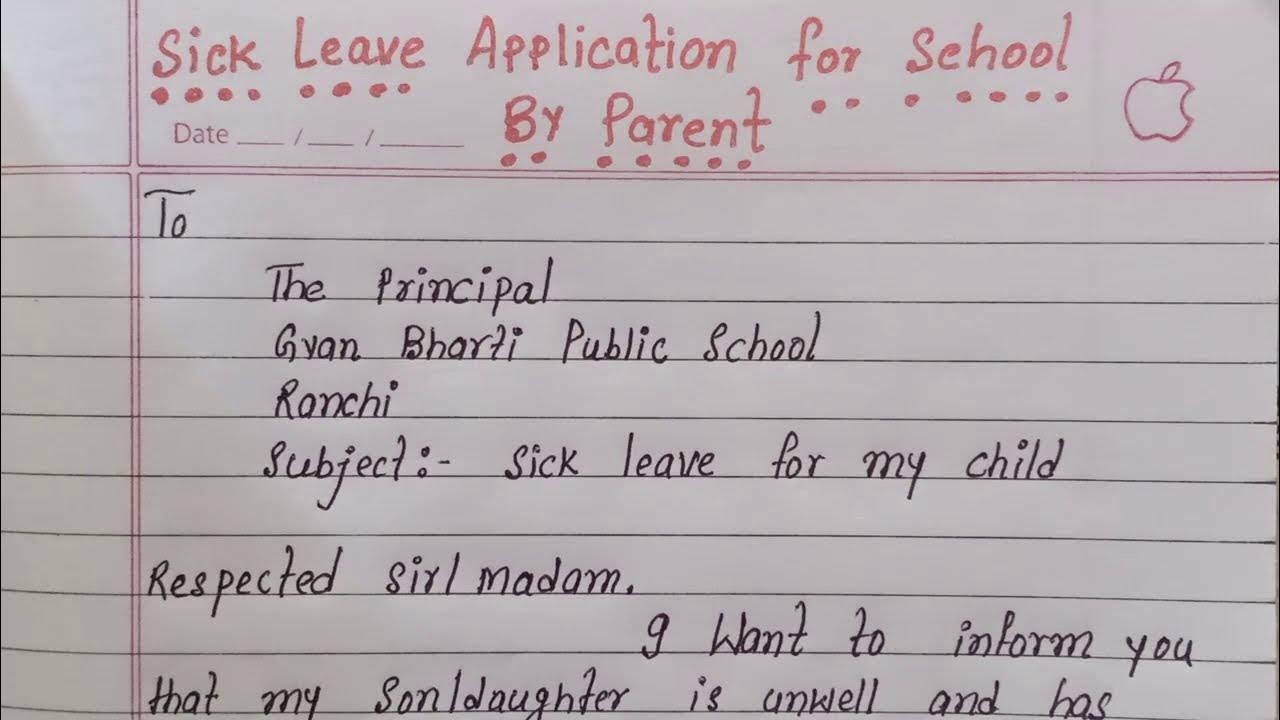 Sick Leave Application for School
By Parent
Date ___ / ___ / _____
To
The Principal
Gyan Bharti Public School
Ranchi
Subject:- Sick leave for my child
Respected sir/madam.
I Want to inform you
that my Son/daughter is unwell and has